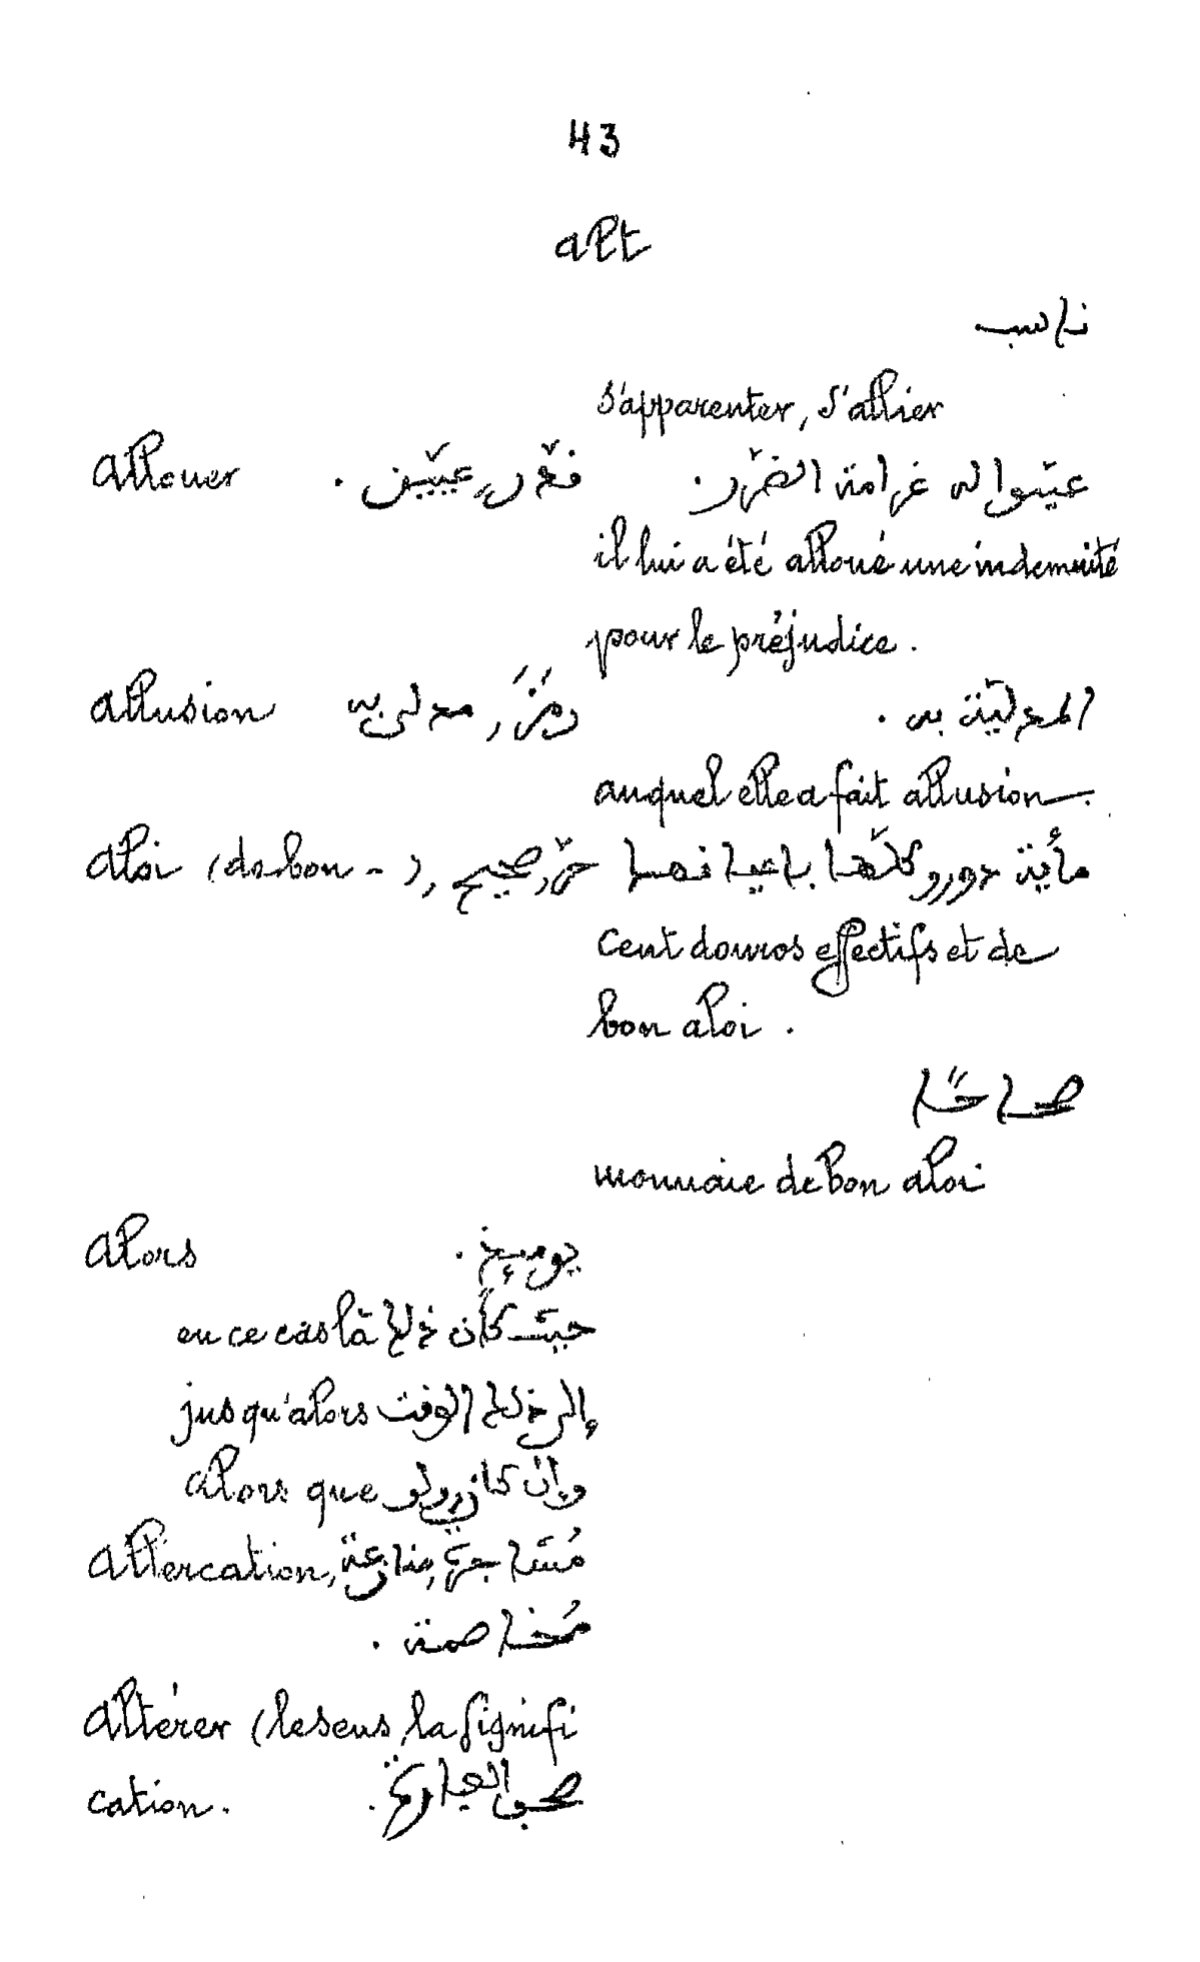 43
alt
ناسب
s'apparenter, s'allier
allouer فدّر, عيّن . عيّنوا له غرامة الضرّر.
il lui a été alloué une indemnité
pour le préjudice .
allusion رمْزَ, مدلى به المدليّة به .
auquel elle a fait allusion.
aloi (de bon - ), حرّ, صحيح مأية دورو كلّها باعيانها
cent douros effectifs et de
bon aloi .
صحاحًا
monnaie de bon aloi
alors .
en ce cas là حيث كان ذلك
jusqu'alors إلى ذلك الوفت
alors que وإن كان, ولو
altercation, مُشاجرة, منازعة
مُخاصمة .
altérer (le sens, la signifi
cation. العبارة .